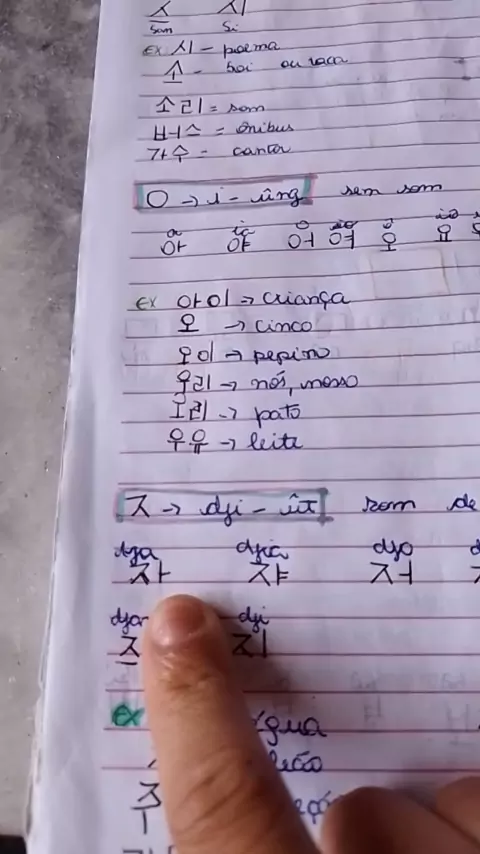 스 시
san si
ex 시 - poema
소 - boi ou vaca
소리 = som
버스 = ônibus
가수 - cantor
ㅇ → i - ûng sem som
a ia
아 야 어 여 오 요
ex 아이 → criança
오 → cinco
오이 → pepino
우리 → nós, nosso
오리 → pato
우유 → leite
ㅈ → dji - ût som de
dja djia djo
자 쟈 저
dji
지
ex
주